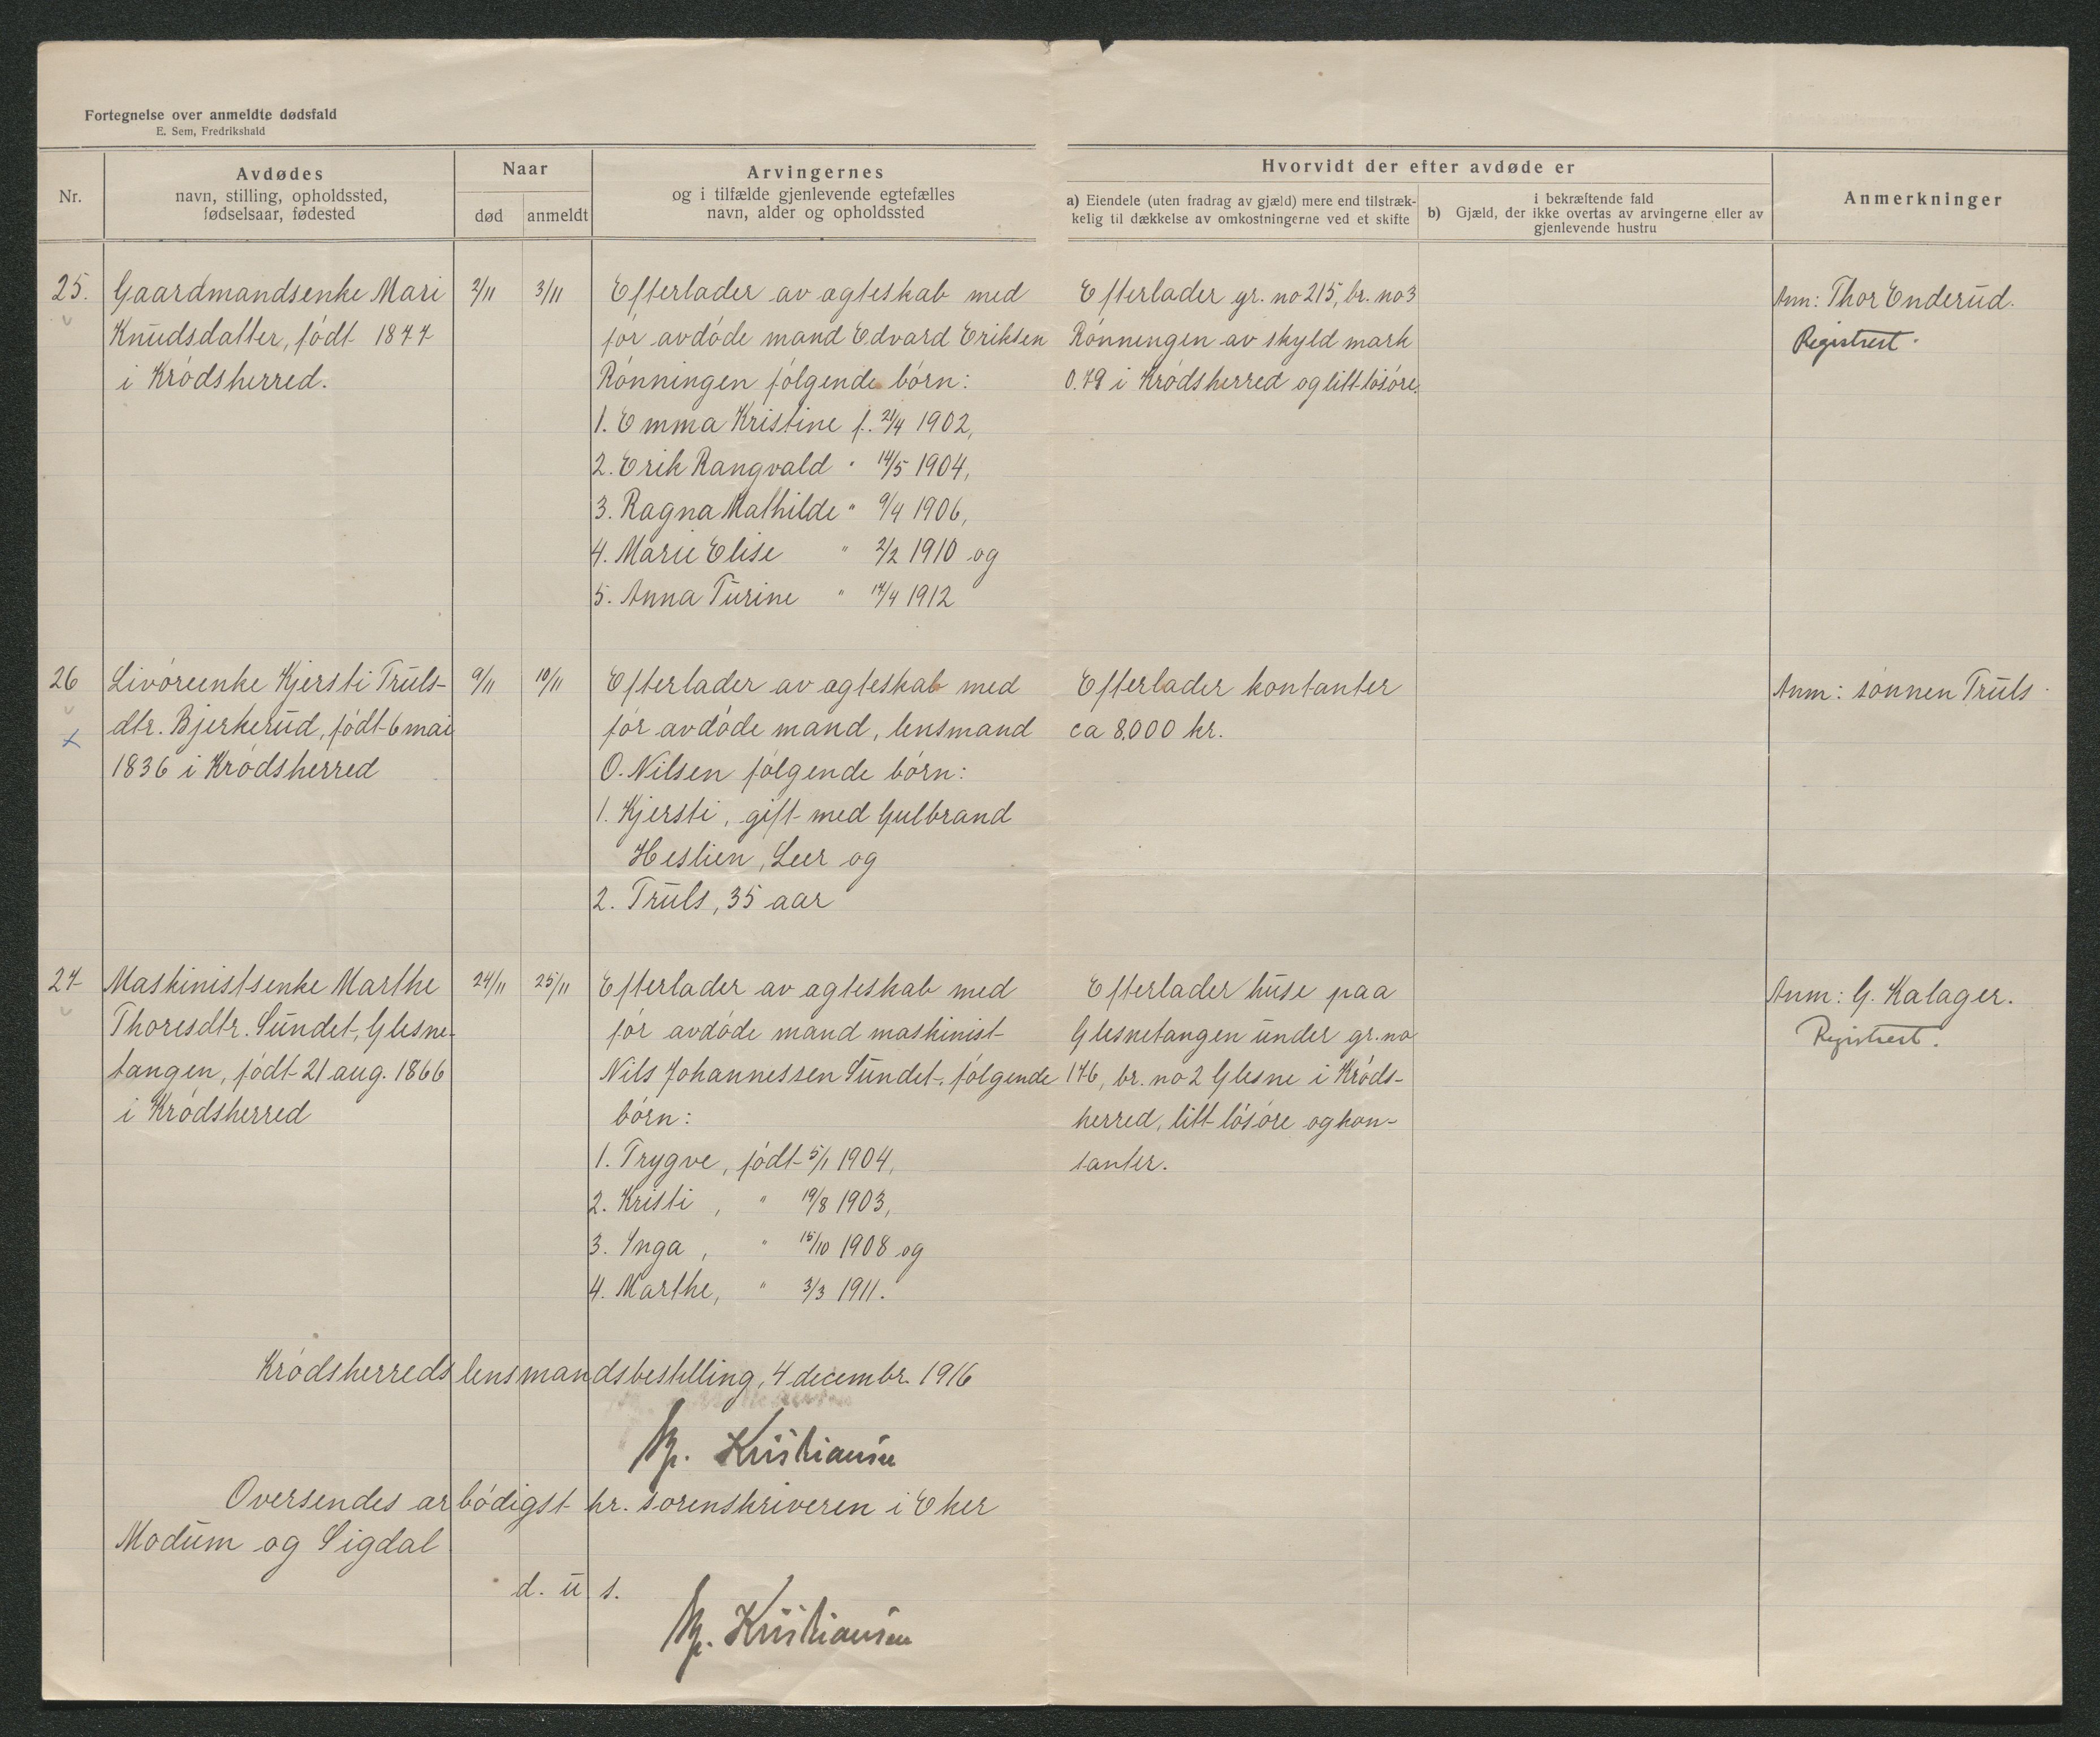 Fortegnelse over anmeldte dødsfald
E. Sem, Fredrikshald
Nr.
Avdødes
navn, stilling, opholdssted,
fødselsaar, fødested
Naar
død
anmeldt
Arvingernes
og i tilfælde gjenlevende egtefælles
navn, alder og opholdssted
Hvorvidt der efter avdøde er
a) Eiendele (uten fradrag av gjæld) mere end tilstræk-
kelig til dækkelse av omkostningerne ved et skifte
i bekræftende fald
b) Gjæld, der ikke overtas av arvingerne eller av
gjenlevende hustru
Anmerkninger
25.
Gaardmandsenke Mari
Knudsdatter, født 1877
i Krødsherred.
2/11
3/11
Efterlader av egteskab med
før avdøde mand Edvard Eriksen
Rønningen følgende børn:
1. Emma Kristine f. 21/4 1902,
2. Erik Rangvald " 14/5 1904,
3. Ragna Mathilde " 9/4 1906,
4. Marie Elise " 2/2 1910 og
5. Anna Turine " 17/4 1912
Efterlader gr. no 215, br. no 3
Rønningen av skyld mark
0.79 i Krødsherred og litt løsøre.
Anm: Thor Enderud.
Registrert.
26
Livøreenke Kjersti Truls-
dtr. Bjerkerud, født 6 mai
1836 i Krødsherred
9/11
10/11
Efterlader av egteskab med
før avdøde mand, lensmand
O. Nilsen følgende børn:
1. Kjersti, gift med Gulbrand
Heslien, Leer og
2. Truls, 35 aar
Efterlader kontanter
ca 8.000 kr.
Anm: sønnen Truls.
27
Maskinistsenke Marthe
Thoresdtr. Sundet, Glesne-
tangen, født 21 aug. 1866
i Krødsherred
24/11
25/11
Efterlader av egteskab med
før avdøde mand maskinist
Nils Johannessen Sundet, følgende
børn:
1. Trygve, født 5/1 1904,
2. Kristi, " 19/8 1903,
3. Inga, " 15/10 1908 og
4. Marthe, " 3/3 1911.
Efterlader huse paa
Glesnetangen under gr. no
176, br. no 2 Glesne i Krøds-
herred, litt løsøre og kon-
tanter.
Anm: G. Kalager.
Registrert.
Krødsherreds lensmandsbestilling, 4 decembr. 1916
Kristiansen
Oversendes ærbødigst hr. sorenskriveren i Eker
Modum og Sigdal
d. u. s.
Kristiansen